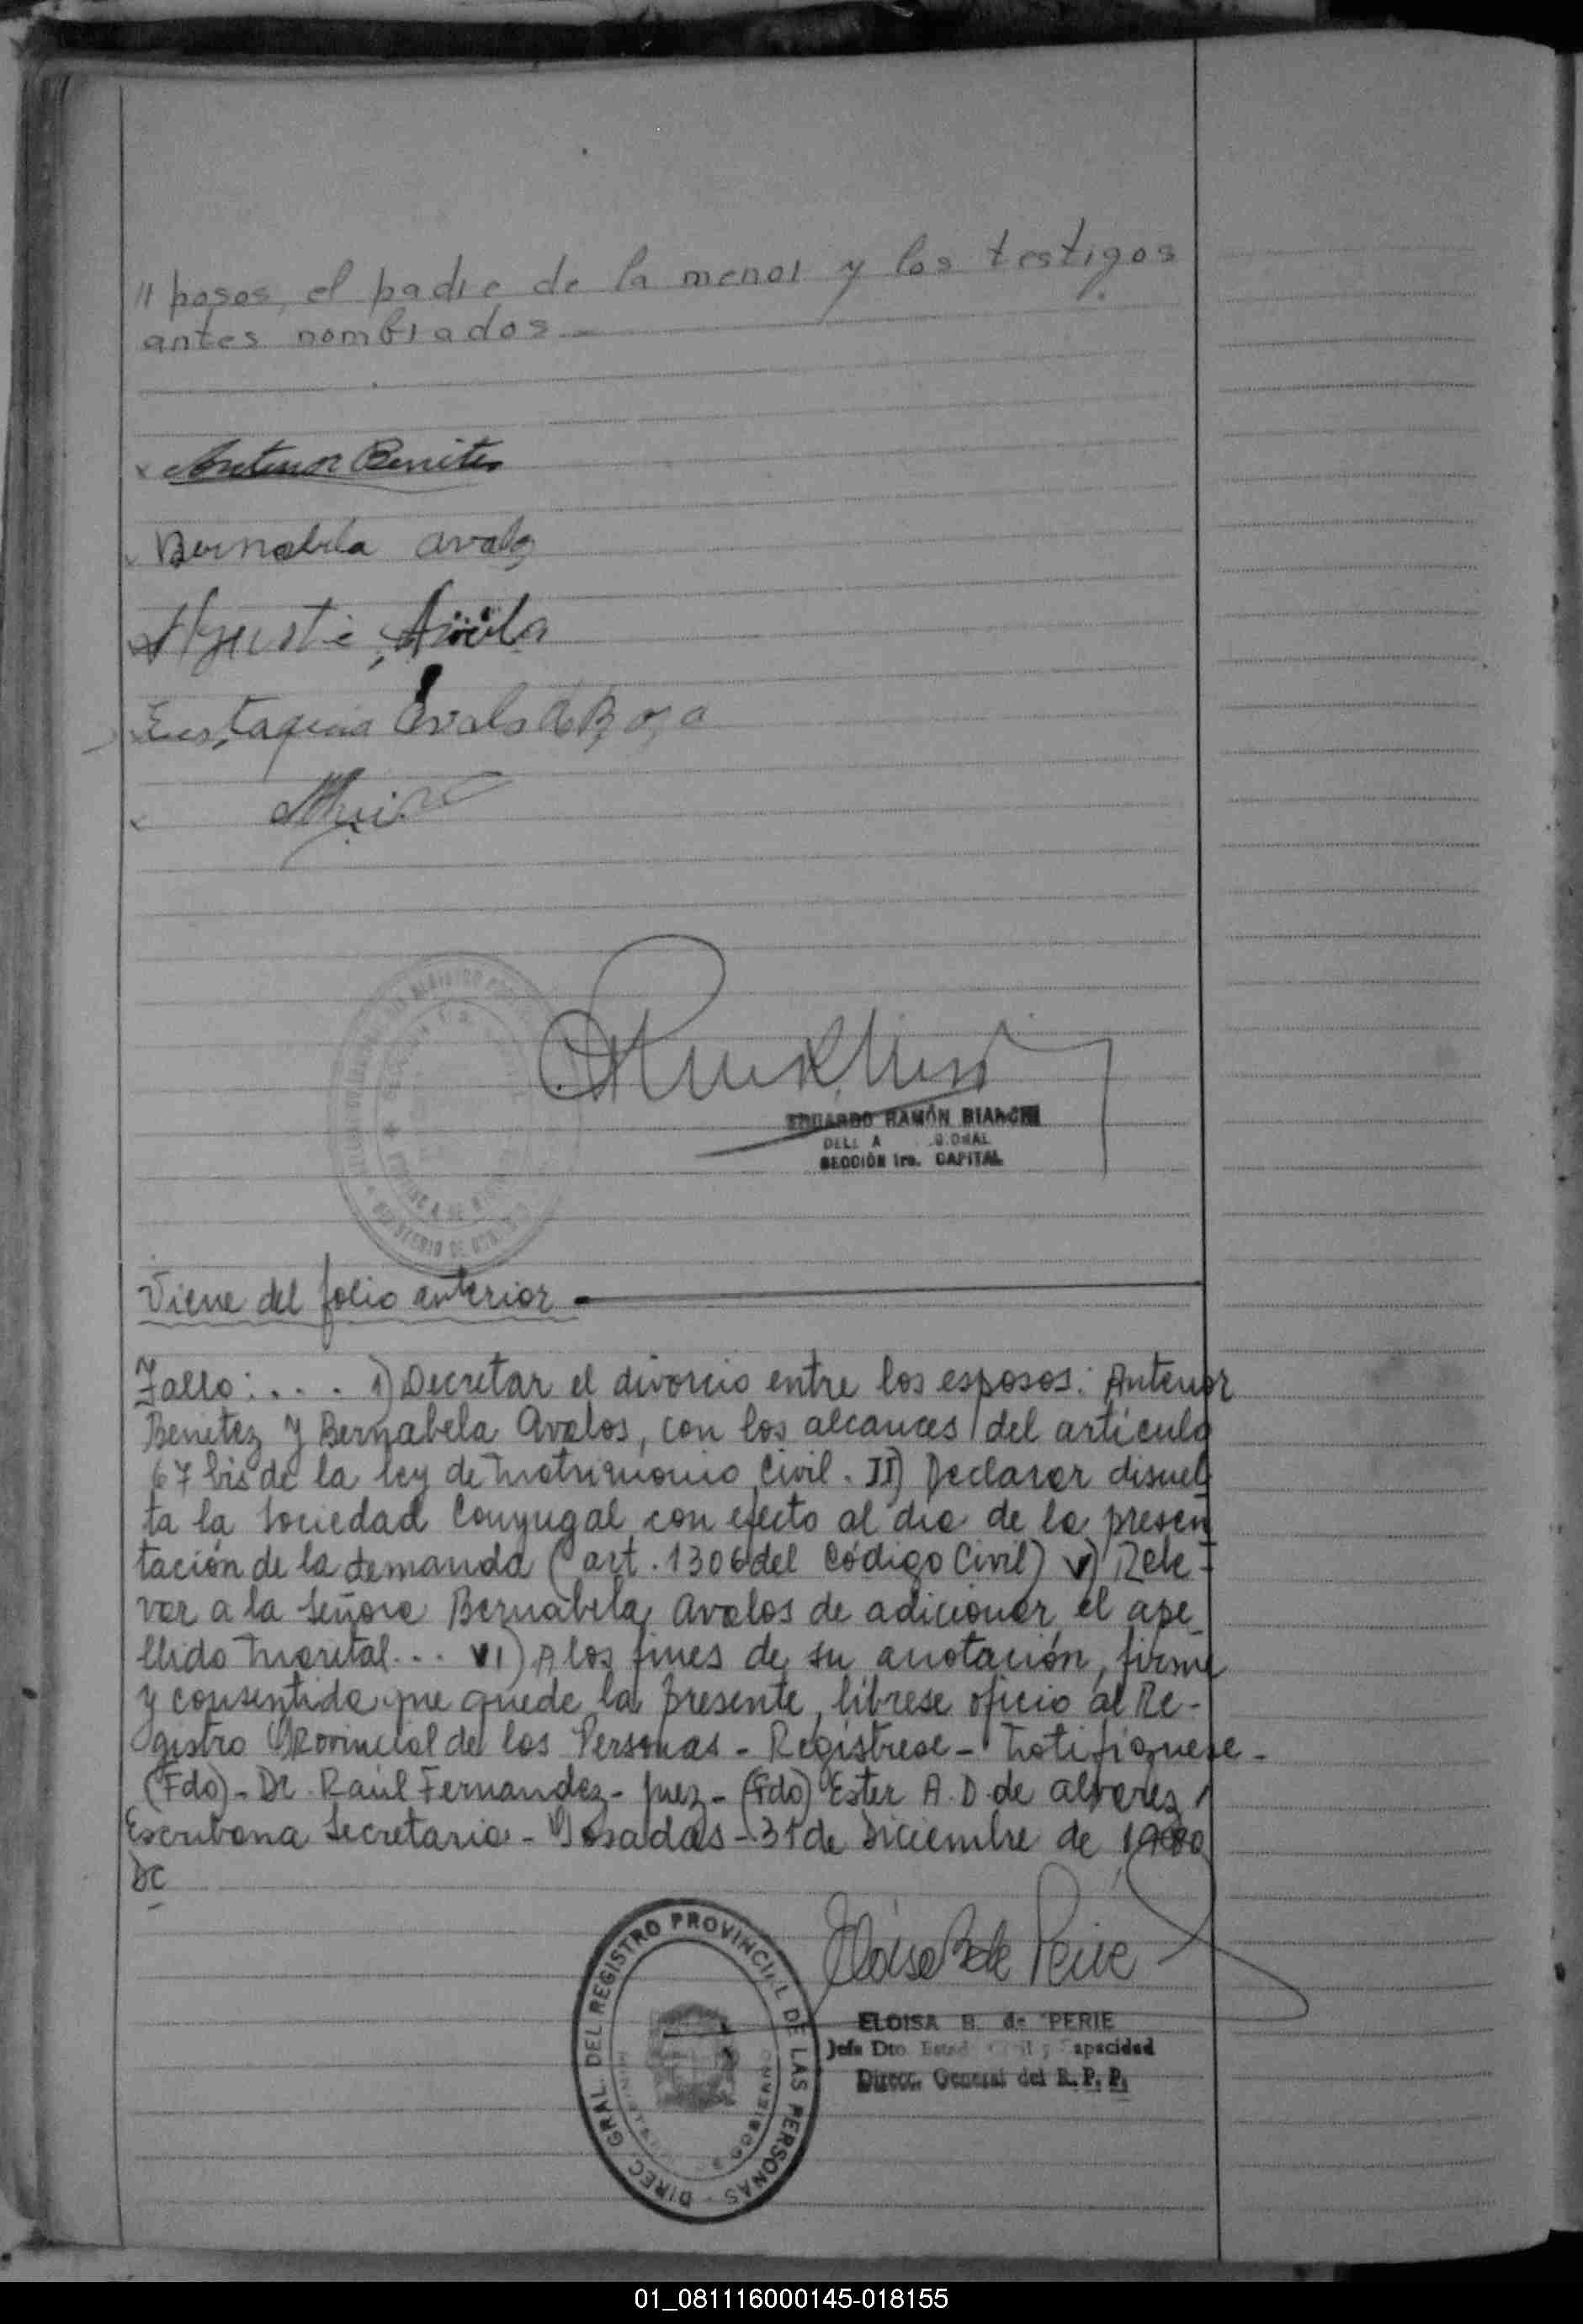 " posos, el padre de la menor y los testigos
antes nombrados
x Antenor Benitez
x Bernabela avalos
x
Eustaquia
x
EDUARDO RAMÓN BIANCHI
SECCIÓN 1ra. CAPITAL
Viene del folio anterior
Fallo: . . . 1) Decretar el divorcio entre los esposos: Antenor
Benitez y Bernabela Avalos, con los alcances del articulo
67 bis de la ley de matrimonio Civil. II) Declarar disuel
ta la Sociedad Conyugal con efecto al dia de la presen
tación de la demanda (art. 1306 del Código Civil) V) Rele-
var a la Señora Bernabela Avalos de adicionar el ape
llido marital... VI) A los fines de su anotación, firme
y consentida que quede la presente, líbrese oficio al Re-
gistro Provincial de las Personas - Regístrese - Notifíquese -
(Fdo) - Dr. Raúl Fernandez - Juez - (Fdo) Ester A. D. de alvarez
Escribana Secretaria - Posadas - 31 de Diciembre de 1980
DC
Eloisa B de Perie
DIREC. GRAL. DEL REGISTRO PROVINCIAL DE LAS PERSONAS
ELOISA B. de PERIE
Jefa Dto. Estado Civil y Capacidad
Direcc. General del R. P. P.
01_081116000145-018155